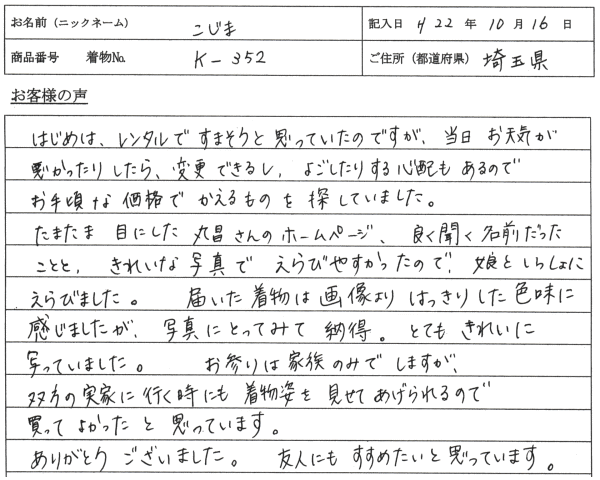 お名前（ニックネーム） こじま 記入日 H22 年 10 月 16 日
商品番号 着物No. K-352 ご住所（都道府県） 埼玉県
お客様の声
はじめは、レンタルですまそうと思っていたのですが、当日お天気が
悪かったりしたら、変更できるし、よごしたりする心配もあるので
お手頃な価格でかえるものを探していました。
たまたま目にした丸昌さんのホームページ、良く聞く名前だった
ことと、きれいな写真でえらびやすかったので、娘といっしょに
えらびました。 届いた着物は画像よりはっきりした色味に
感じましたが、写真にとってみて納得。とてもきれいに
写っていました。 お参りは家族のみでしますが、
双方の実家に行く時にも着物姿を見せてあげられるので
買ってよかったと思っています。
ありがとうございました。 友人にもすすめたいと思っています。